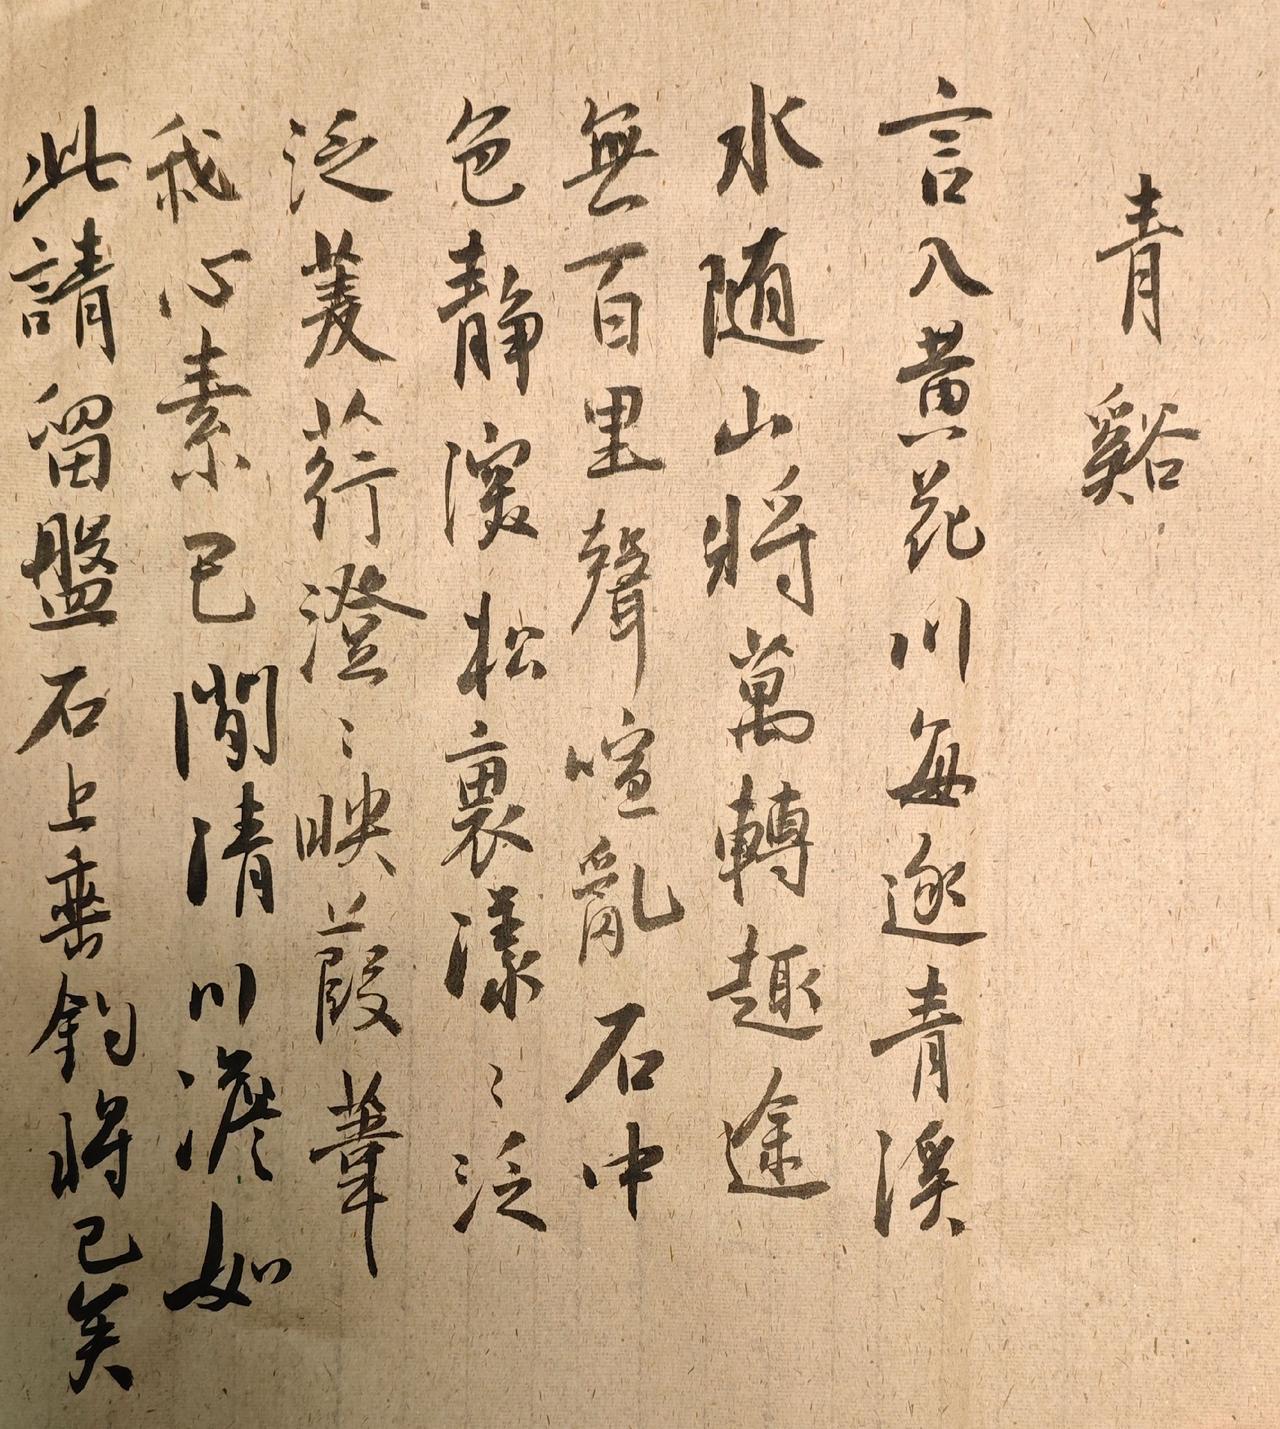 青谿
言入黄花川每逐青溪
水随山将萬轉趣途
無百里聲喧亂石中
色静深松裏漾〻泛
泛菱荇澄〻映葭葦
我心素已閒清川澹如
此請留盤石上垂釣将已矣